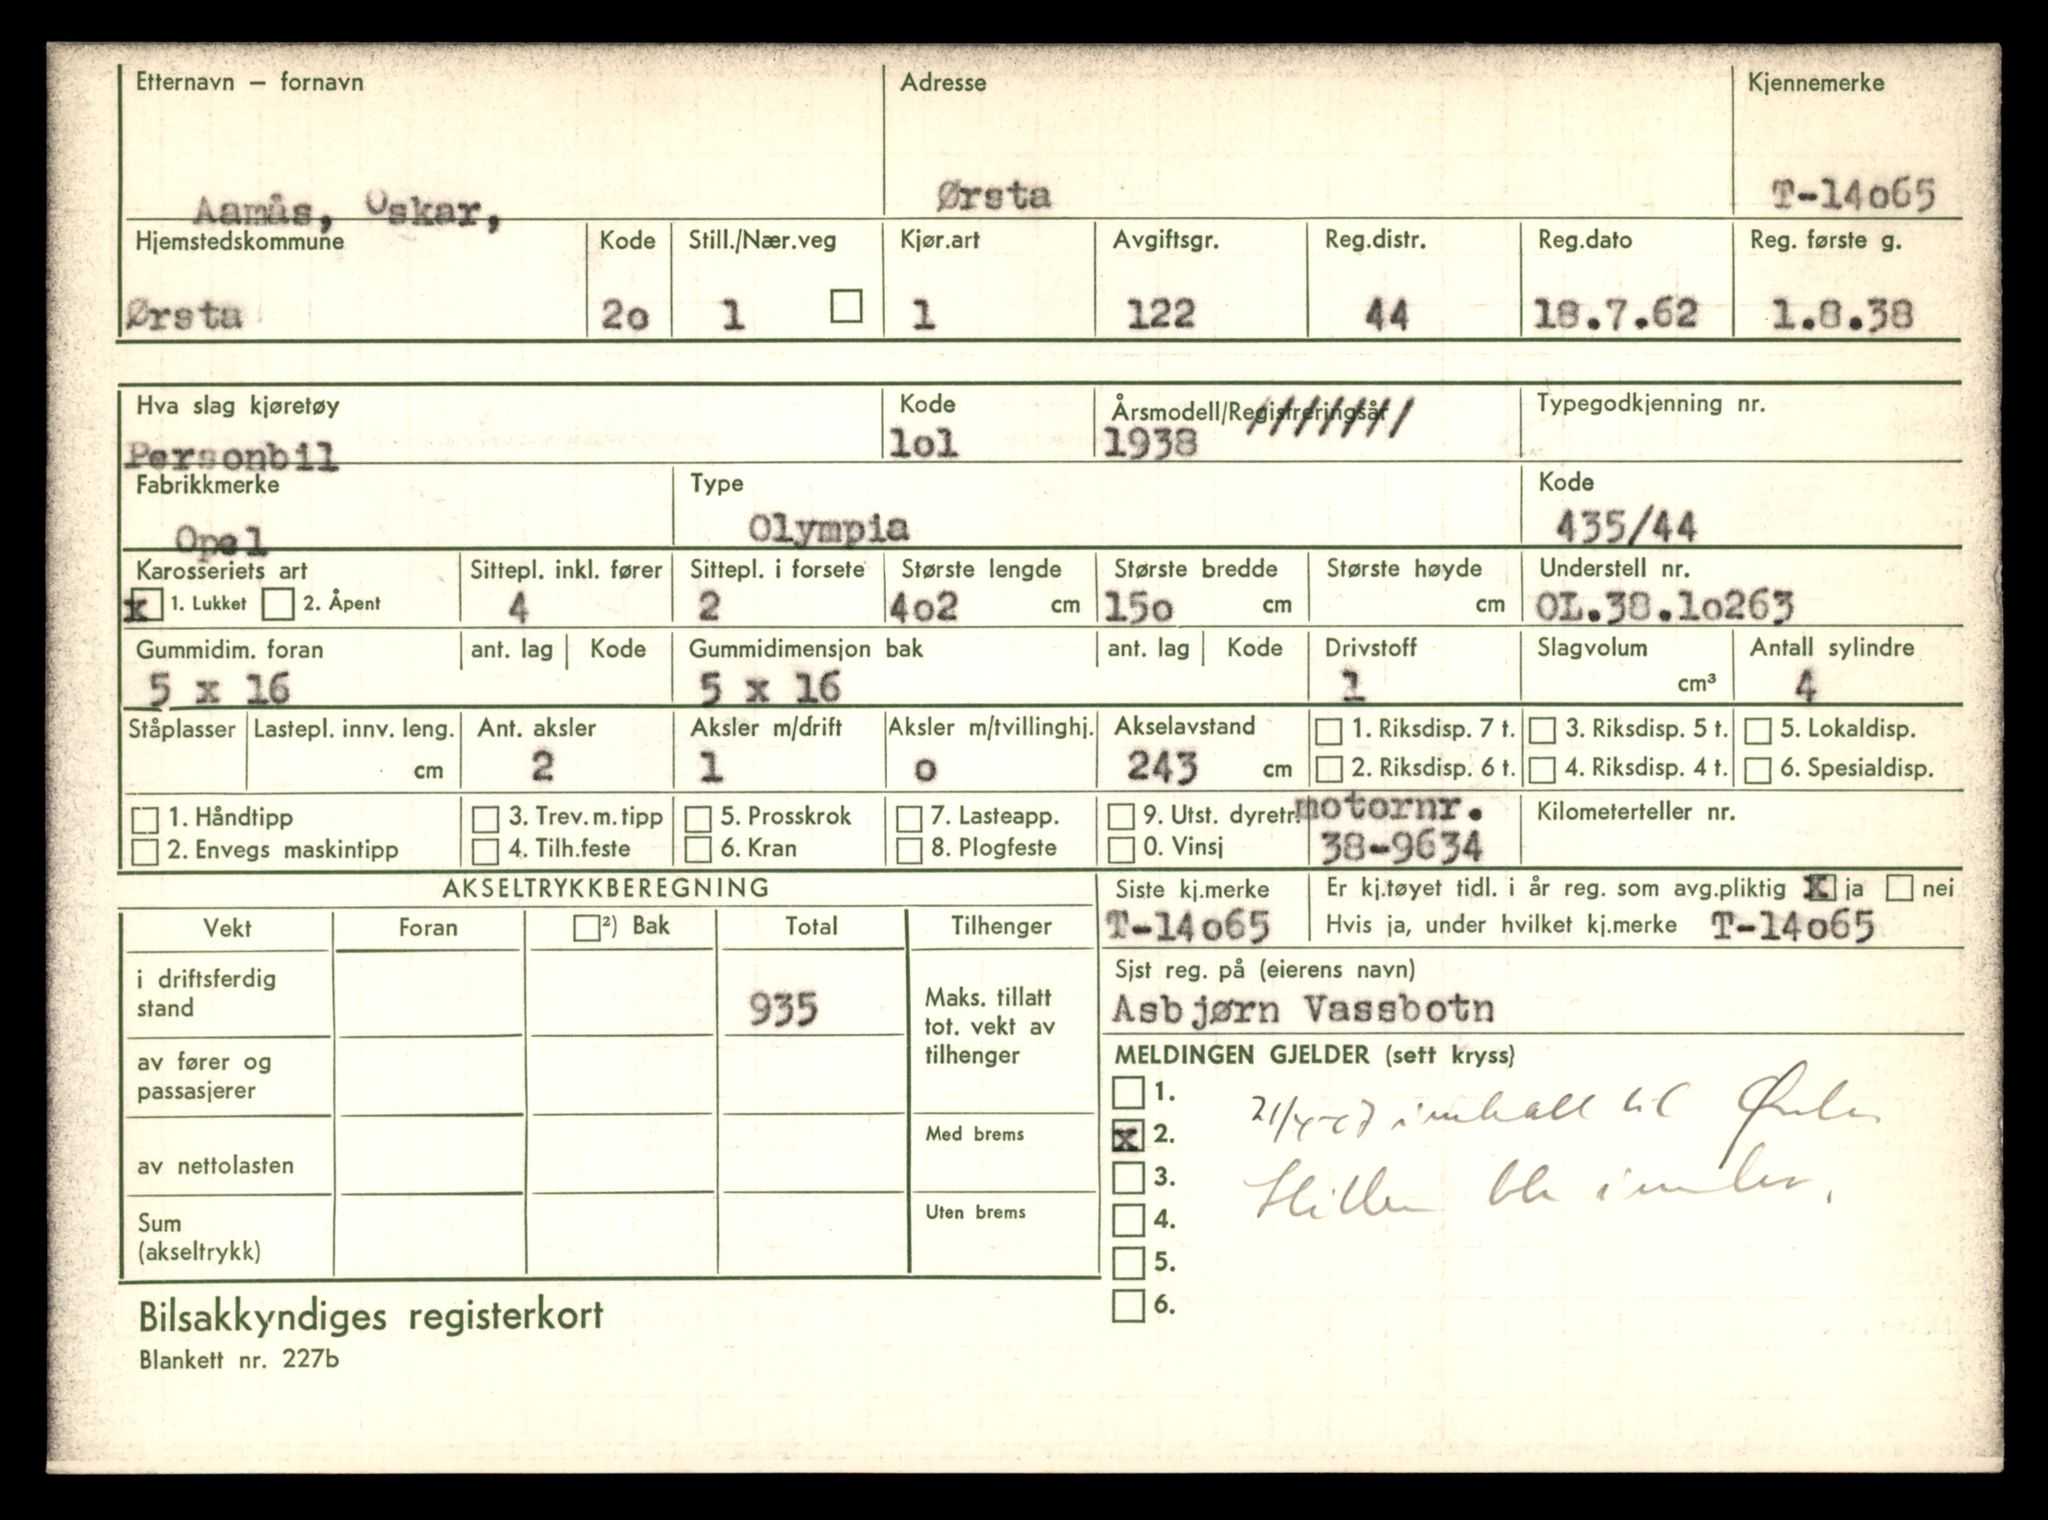 Etternavn – fornavn Adresse Kjennemerke
Aamås, Oskar, Ørsta T-14o65
Hjemstedskommune Kode Still./Nær.veg Kjør.art Avgiftsgr. Reg.distr. Reg.dato Reg. første g.
Ørsta 2o 1 1 122 44 18.7.62 1.8.38
Hva slag kjøretøy Kode Årsmodell/Registreringsår /////// Typegodkjenning nr.
Personbil lol 1938
Fabrikkmerke Type Kode
Opel Olympia 435/44
Karosseriets art Sittepl. inkl. fører Sittepl. i forsete Største lengde Største bredde Største høyde Understell nr.
x 1. Lukket 2. Åpent 4 2 4o2 cm 15o cm cm OL.38.1o263
Gummidim. foran ant. lag Kode Gummidimensjon bak ant. lag Kode Drivstoff Slagvolum Antall sylindre
5 x 16 5 x 16 1 cm³ 4
Ståplasser Lastepl. innv. leng. Ant. aksler Aksler m/drift Aksler m/tvillinghj. Akselavstand 1. Riksdisp. 7 t. 3. Riksdisp. 5 t. 5. Lokaldisp.
cm 2 1 o 243 cm 2. Riksdisp. 6 t. 4. Riksdisp. 4 t. 6. Spesialdisp.
1. Håndtipp 3. Trev. m. tipp 5. Prosskrok 7. Lasteapp. 9. Utst. dyretr. motornr. Kilometerteller nr.
2. Envegs maskintipp 4. Tilh.feste 6. Kran 8. Plogfeste 0. Vinsj 38-9634
AKSELTRYKKBEREGNING Siste kj.merke Er kj.tøyet tidl. i år reg. som avg.pliktig x ja nei
Vekt Foran ²) Bak Total Tilhenger T-14o65 Hvis ja, under hvilket kj.merke T-14o65
Sist reg. på (eierens navn)
Asbjørn Vassbotn
i driftsferdig
stand 935
Maks. tillatt
tot. vekt av
tilhenger
av fører og
passasjerer
Med brems
av nettolasten
Uten brems
Sum
(akseltrykk)
MELDINGEN GJELDER (sett kryss)
1.
x 2.
3.
4.
5.
6.
til
Bilsakkyndiges registerkort
Blankett nr. 227b